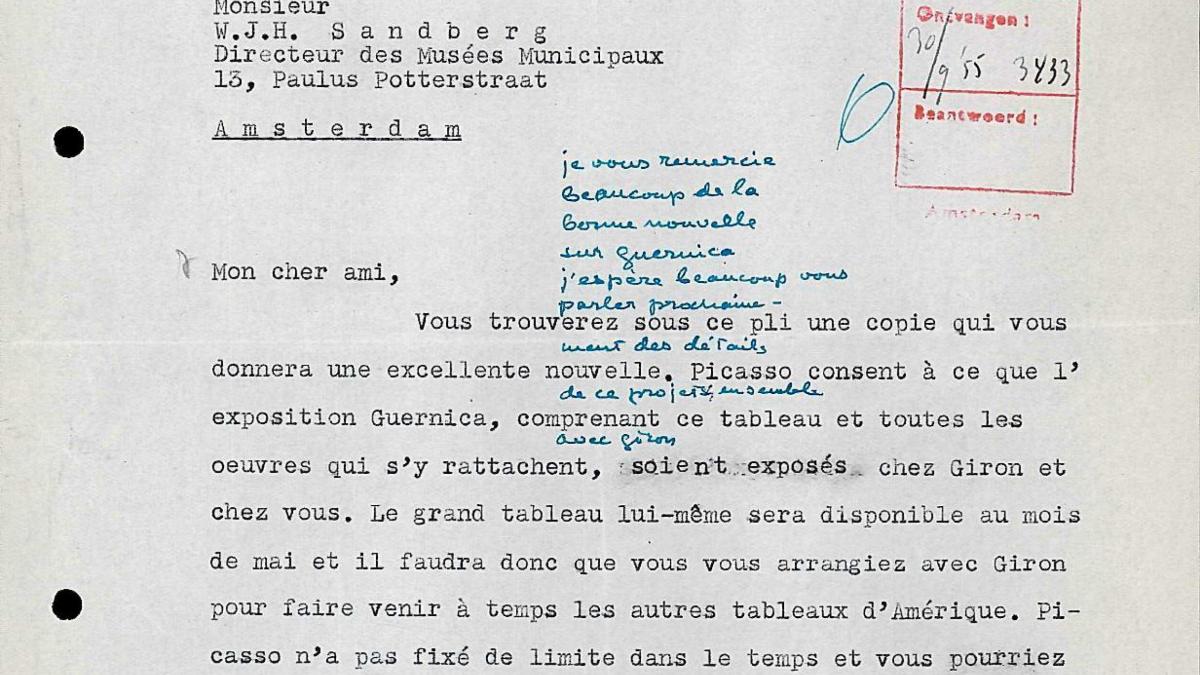 Monsieur
W.J.H. Sandberg
Directeur des Musées Municipaux
13, Paulus Potterstraat
Amsterdam
Ontvangen :
30/9 '55 3433
Beantwoord :
Amsterdam
je vous remercie
beaucoup de la
bonne nouvelle
sur guernica
j'espère beaucoup vous
parler prochaine-
ment des détails
de ce projet, ensemble
avec giron
Mon cher ami,
Vous trouverez sous ce pli une copie qui vous
donnera une excellente nouvelle. Picasso consent à ce que l'
exposition Guernica, comprenant ce tableau et toutes les
oeuvres qui s'y rattachent, soient exposés chez Giron et
chez vous. Le grand tableau lui-même sera disponible au mois
de mai et il faudra donc que vous vous arrangiez avec Giron
pour faire venir à temps les autres tableaux d'Amérique. Pi-
casso n'a pas fixé de limite dans le temps et vous pourriez